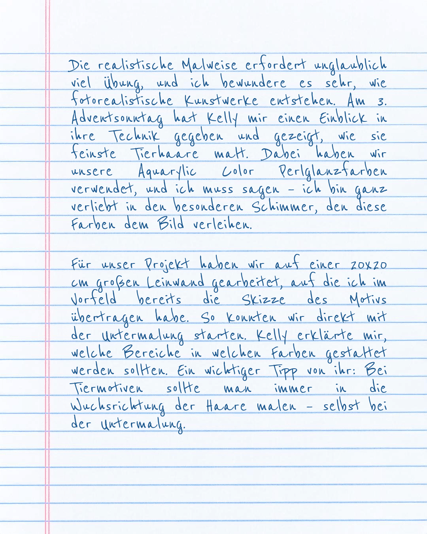 Die realistische Malweise erfordert unglaublich
viel Übung, und ich bewundere es sehr, wie
fotorealistische Kunstwerke entstehen. Am 3.
Adventsonntag hat Kelly mir einen Einblick in
ihre Technik gegeben und gezeigt, wie sie
feinste Tierhaare malt. Dabei haben wir
unsere Aquarylic Color Perlglanzfarben
verwendet, und ich muss sagen – ich bin ganz
verliebt in den besonderen Schimmer, den diese
Farben dem Bild verleihen.

Für unser Projekt haben wir auf einer 20x20
cm großen Leinwand gearbeitet, auf die ich im
Vorfeld bereits die Skizze des Motivs
übertragen habe. So konnten wir direkt mit
der Untermalung starten. Kelly erklärte mir,
welche Bereiche in welchen Farben gestaltet
werden sollten. Ein wichtiger Tipp von ihr: Bei
Tiermotiven sollte man immer in die
Wuchsrichtung der Haare malen – selbst bei
der Untermalung.